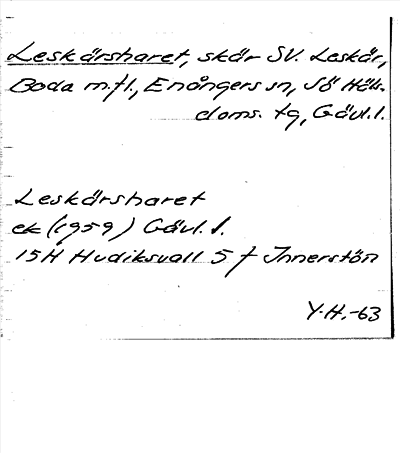 Leskärsharet, skär SV. Leskär,
Boda m.fl., Enångers sn, Sö Häls.
doms. tg, Gävl.l.
Leskärsharet
ek (1959) Gävl. l.
15H Hudiksvall 5 f Innerstön
Y.H.-63